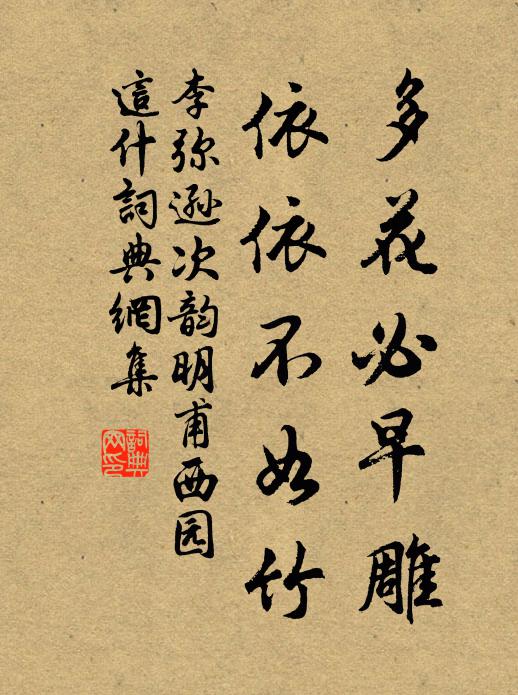 多花必早雕
依依不如竹
李弥逊次韵明甫西园
這什詞典網集
詞典网印